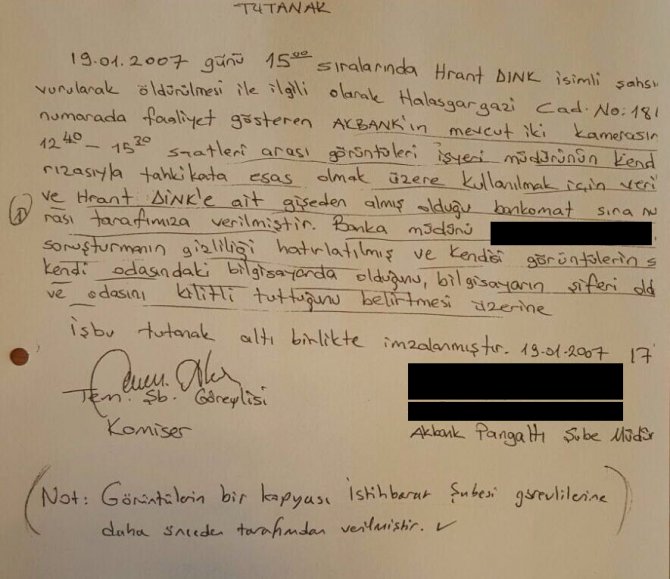 TUTANAK
19.01.2007 günü 15⁰⁰ sıralarında Hrant DİNK isimli şahsı
vurularak öldürülmesi ile ilgili olarak Halasgargazi Cad. No: 181
numarada faaliyet gösteren AKBANK'ın mevcut iki kamerasın
12⁴⁰ - 15³⁰ saatleri arası görüntüleri işyeri müdürünün kend
rızasıyla tahkikata esas olmak üzere kullanılmak için veri
ve Hrant DİNK'e ait gişeden almış olduğu bankomat sıra nu
rası tarafımıza verilmiştir. Banka müdürü
soruşturmanın gizliliği hatırlatılmış ve kendisi görüntülerin s
kendi odasındaki bilgisayarda olduğunu, bilgisayarın şifreli old
ve odasını kilitli tuttuğunu belirtmesi üzerine
işbu tutanak altı birlikte imzalanmıştır. 19.01.2007 17
Tem. Şb. Görevlisi
Komiser
Akbank Pangaltı Şube Müdür
(Not: Görüntülerin bir kopyası İstihbarat Şubesi görevlilerine
daha önceden tarafımdan verilmiştir. ✓)